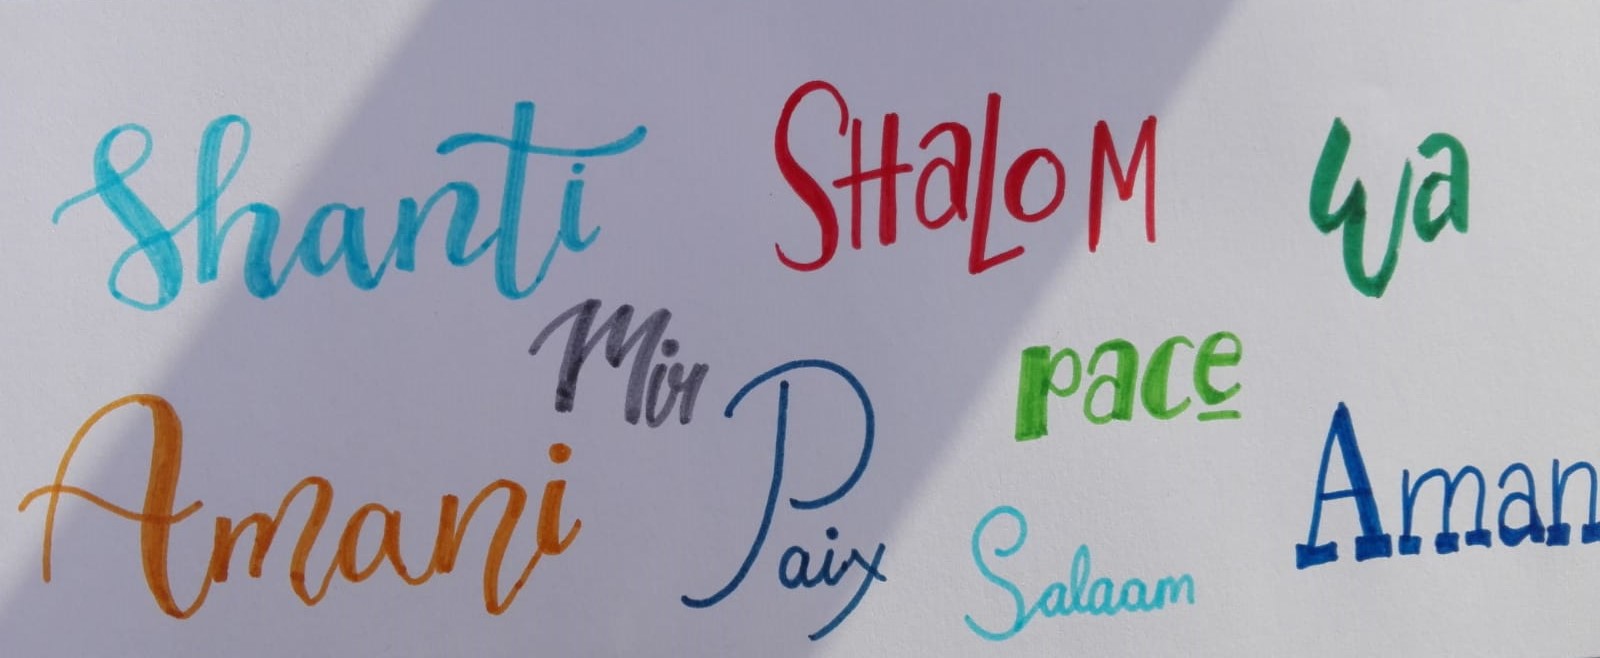 Shanti SHaLoM Wa
Mir pace
Amani Paix Salaam Aman